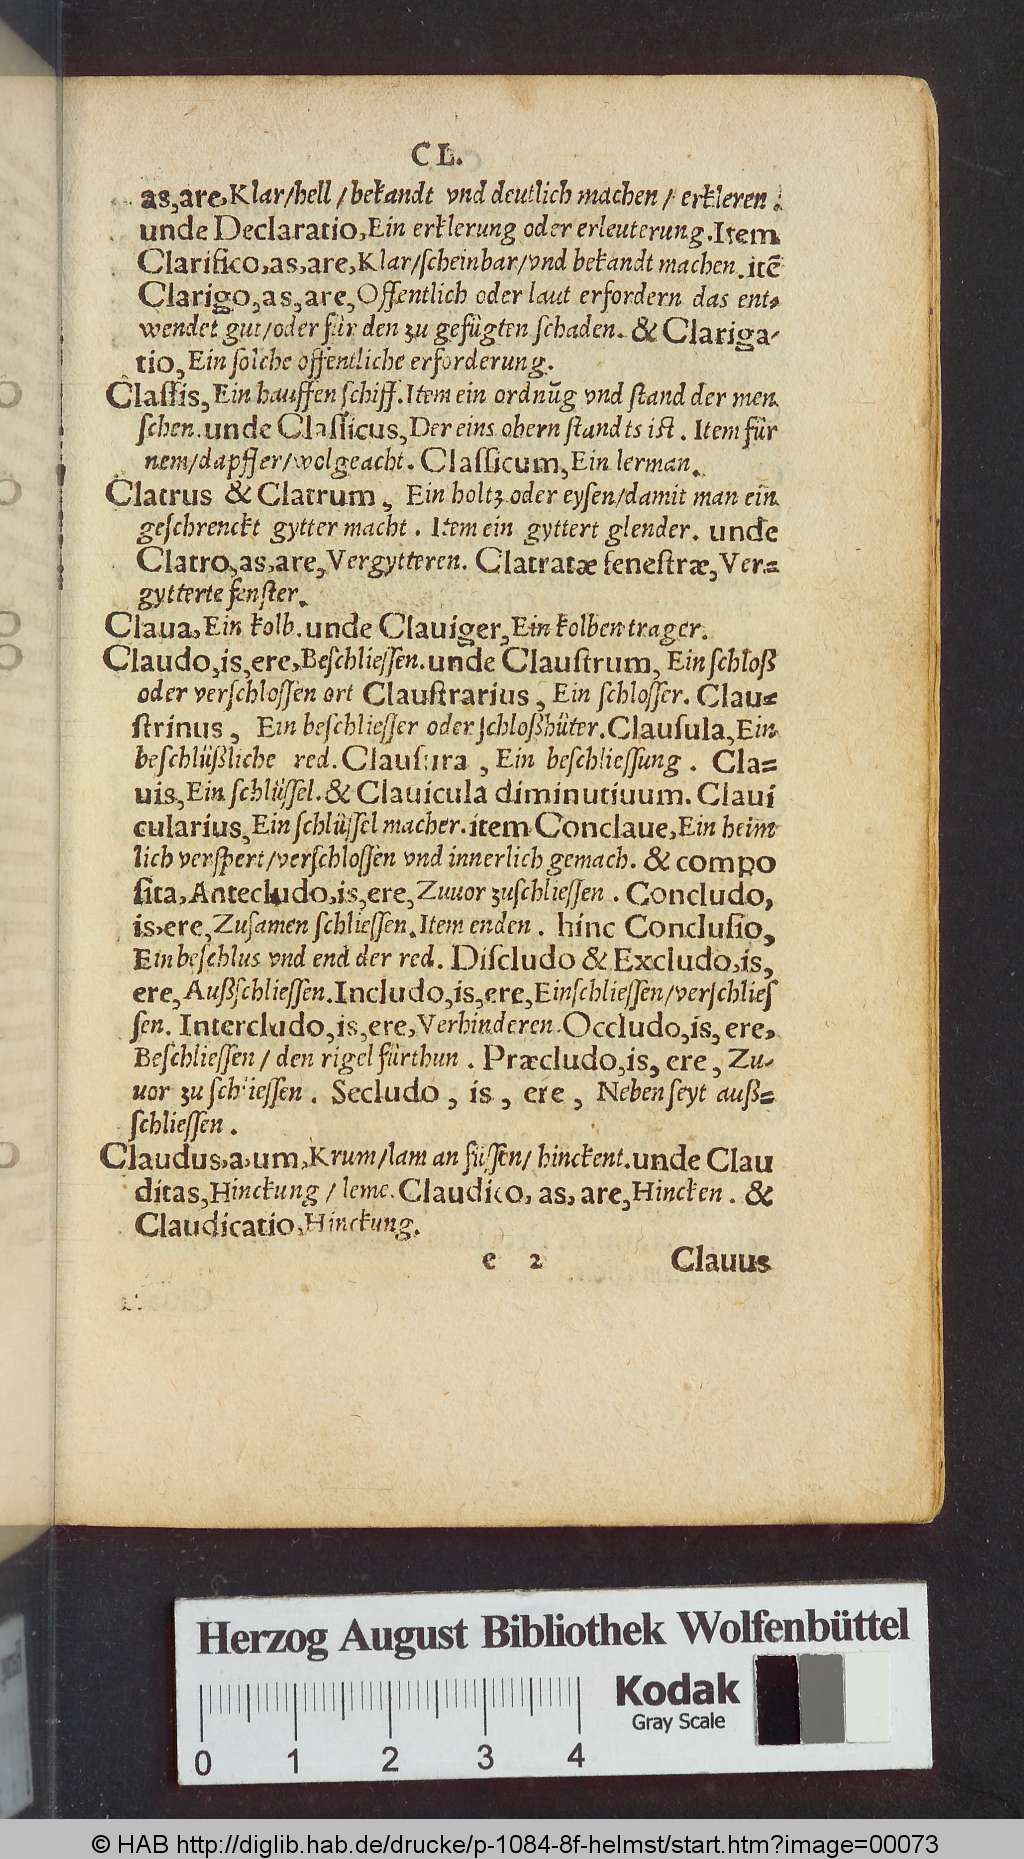 CL.
as,are,Klar/hell/bekandt vnd deutlich machen/ erkleren.
unde Declaratio,Ein erklerung oder erleuterung.Item
Clarifico,as,are,Klar/scheinbar/vnd bekandt machen.itẽ
Clarigo,as,are,Offentlich oder laut erfordern das ent-
wendet gut/oder für den zu gefügten schaden. & Clariga-
tio,Ein solche offentliche erforderung.
Claſſis,Ein hauffen schiff.Item ein ordnũg vnd ſtand der men
ſchen.unde Claſſicus,Der eins obern ſtandts iſt. Item für
nem/dapffer/wolgeacht. Claſſicum,Ein lerman.
Clatrus & Clatrum, Ein holtz oder eyſen/damit man ein
geſchrenckt gytter macht. Item ein gyttert glender. unde
Clatro,as,are,Vergytteren. Clatratæ feneſtræ,Ver-
gytterte fenſter.
Claua,Ein kolb.unde Clauiger,Ein kolbentrager.
Claudo,is,ere,Beſchlieſſen.unde Clauſtrum,Ein ſchloß
oder verſchloſſen ort Clauſtrarius, Ein ſchloſſer. Clau-
ſtrinus, Ein beſchlieſſer oder ſchloßhüter.Clauſula,Ein
beſchlüßliche red.Clauſura, Ein beſchlieſſung. Cla-
uis,Ein ſchlüſſel.& Clauicula diminutiuum. Claui
cularius,Ein ſchlüſſel macher.item Conclaue,Ein heim
lich verſpert/verſchloſſen vnd innerlich gemach. & compo
ſita,Antecludo,is,ere,Zuuor zuſchlieſſen. Concludo,
is,ere,Zuſamen ſchlieſſen.Item enden. hinc Concluſio,
Ein beſchlus vnd end der red. Diſcludo & Excludo,is,
ere,Außſchlieſſen.Includo,is,ere,Einſchlieſſen/verſchlieſ
ſen. Intercludo,is,ere,Verhinderen.Occludo,is,ere,
Beſchlieſſen/ den rigel fürthun. Præcludo,is, ere, Zu-
uor zu ſchlieſſen. Secludo, is, ere, Nebenſeyt auß-
ſchlieſſen.
Claudus,a,um,Krum/lam an füſſen/ hinckent.unde Clau
ditas,Hinckung/ leme.Claudico, as, are,Hincken. &
Claudicatio,Hinckung.
e 2 Clauus
Herzog August Bibliothek Wolfenbüttel
Kodak
Gray Scale
0 1 2 3 4
© HAB http://diglib.hab.de/drucke/p-1084-8f-helmst/start.htm?image=00073